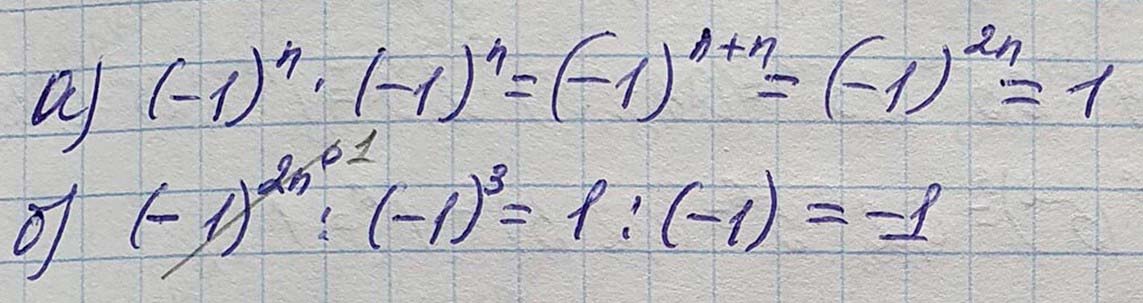 а) (-1)ⁿ · (-1)ⁿ = (-1)ⁿ⁺ⁿ = (-1)²ⁿ = 1
б) (-1)²ⁿ 1 : (-1)³ = 1 : (-1) = -1